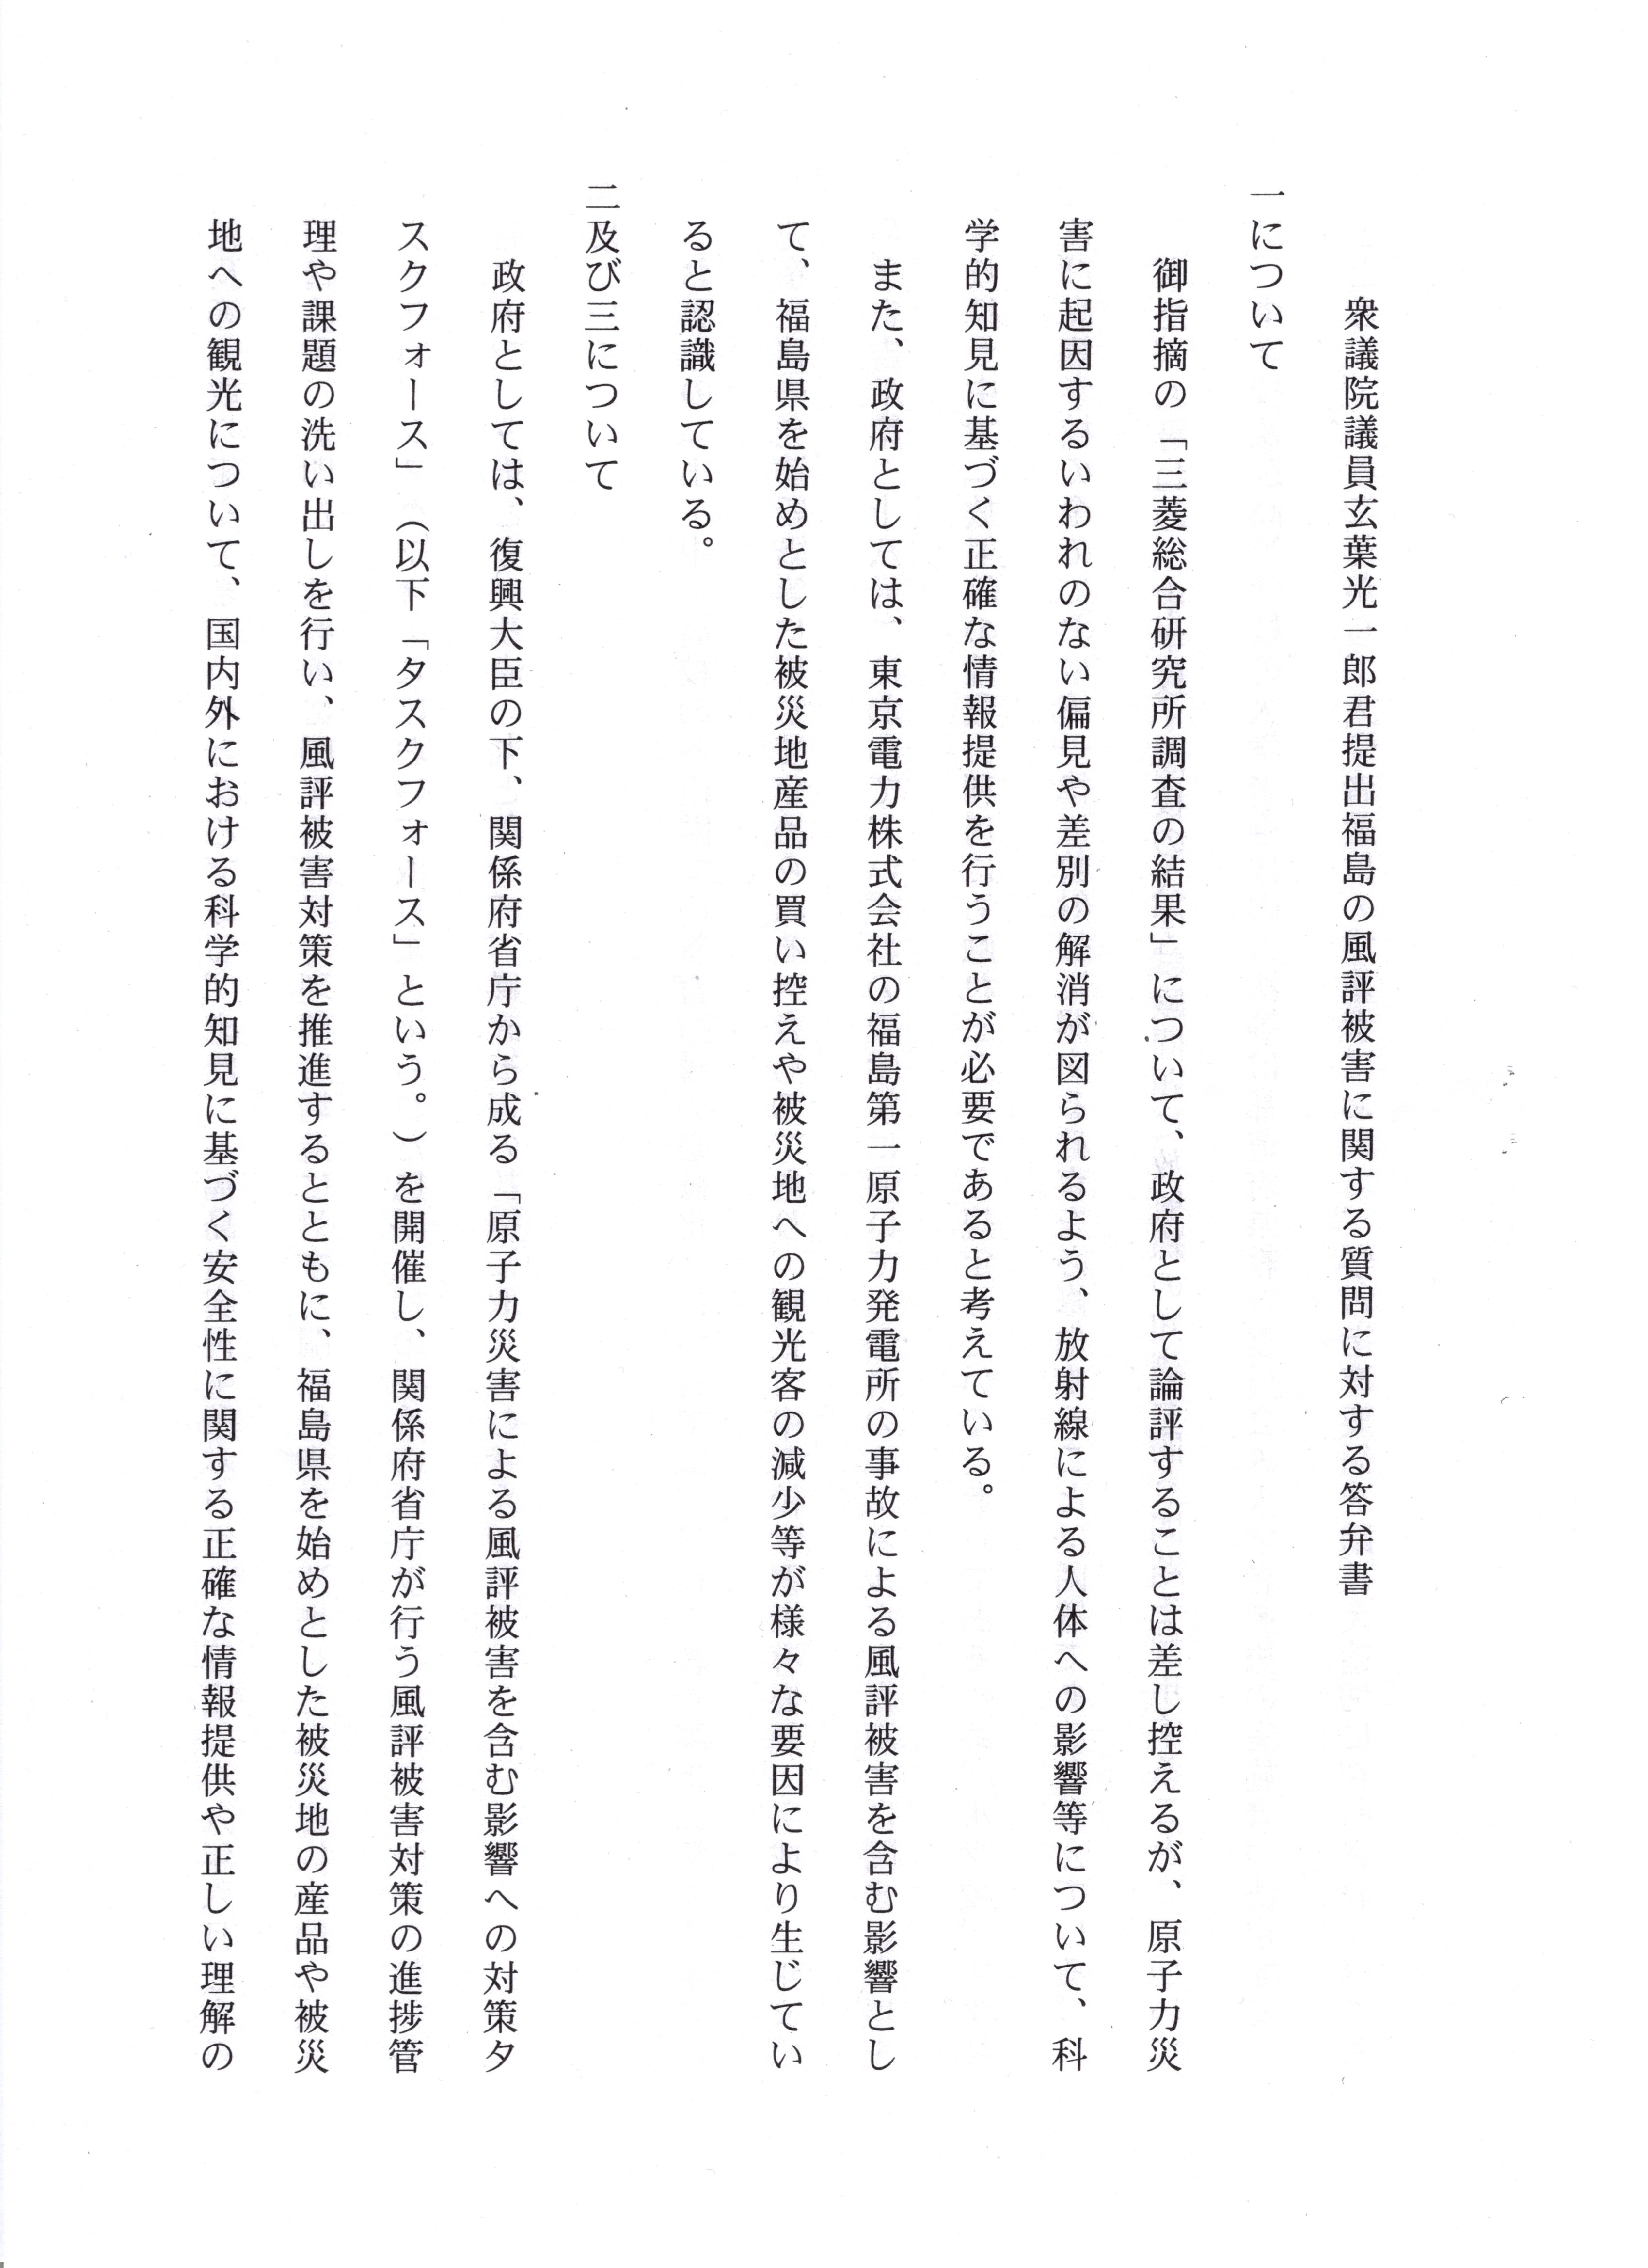 衆議院議員玄葉光一郎君提出福島の風評被害に関する質問に対する答弁書
一について
御指摘の「三菱総合研究所調査の結果」について、政府として論評することは差し控えるが、原子力災
害に起因するいわれのない偏見や差別の解消が図られるよう、放射線による人体への影響等について、科
学的知見に基づく正確な情報提供を行うことが必要であると考えている。
また、政府としては、東京電力株式会社の福島第一原子力発電所の事故による風評被害を含む影響とし
て、福島県を始めとした被災地産品の買い控えや被災地への観光客の減少等が様々な要因により生じてい
ると認識している。
二及び三について
政府としては、復興大臣の下、関係府省庁から成る「原子力災害による風評被害を含む影響への対策タ
スクフォース」（以下「タスクフォース」という。）を開催し、関係府省庁が行う風評被害対策の進捗管
理や課題の洗い出しを行い、風評被害対策を推進するとともに、福島県を始めとした被災地の産品や被災
地への観光について、国内外における科学的知見に基づく安全性に関する正確な情報提供や正しい理解の